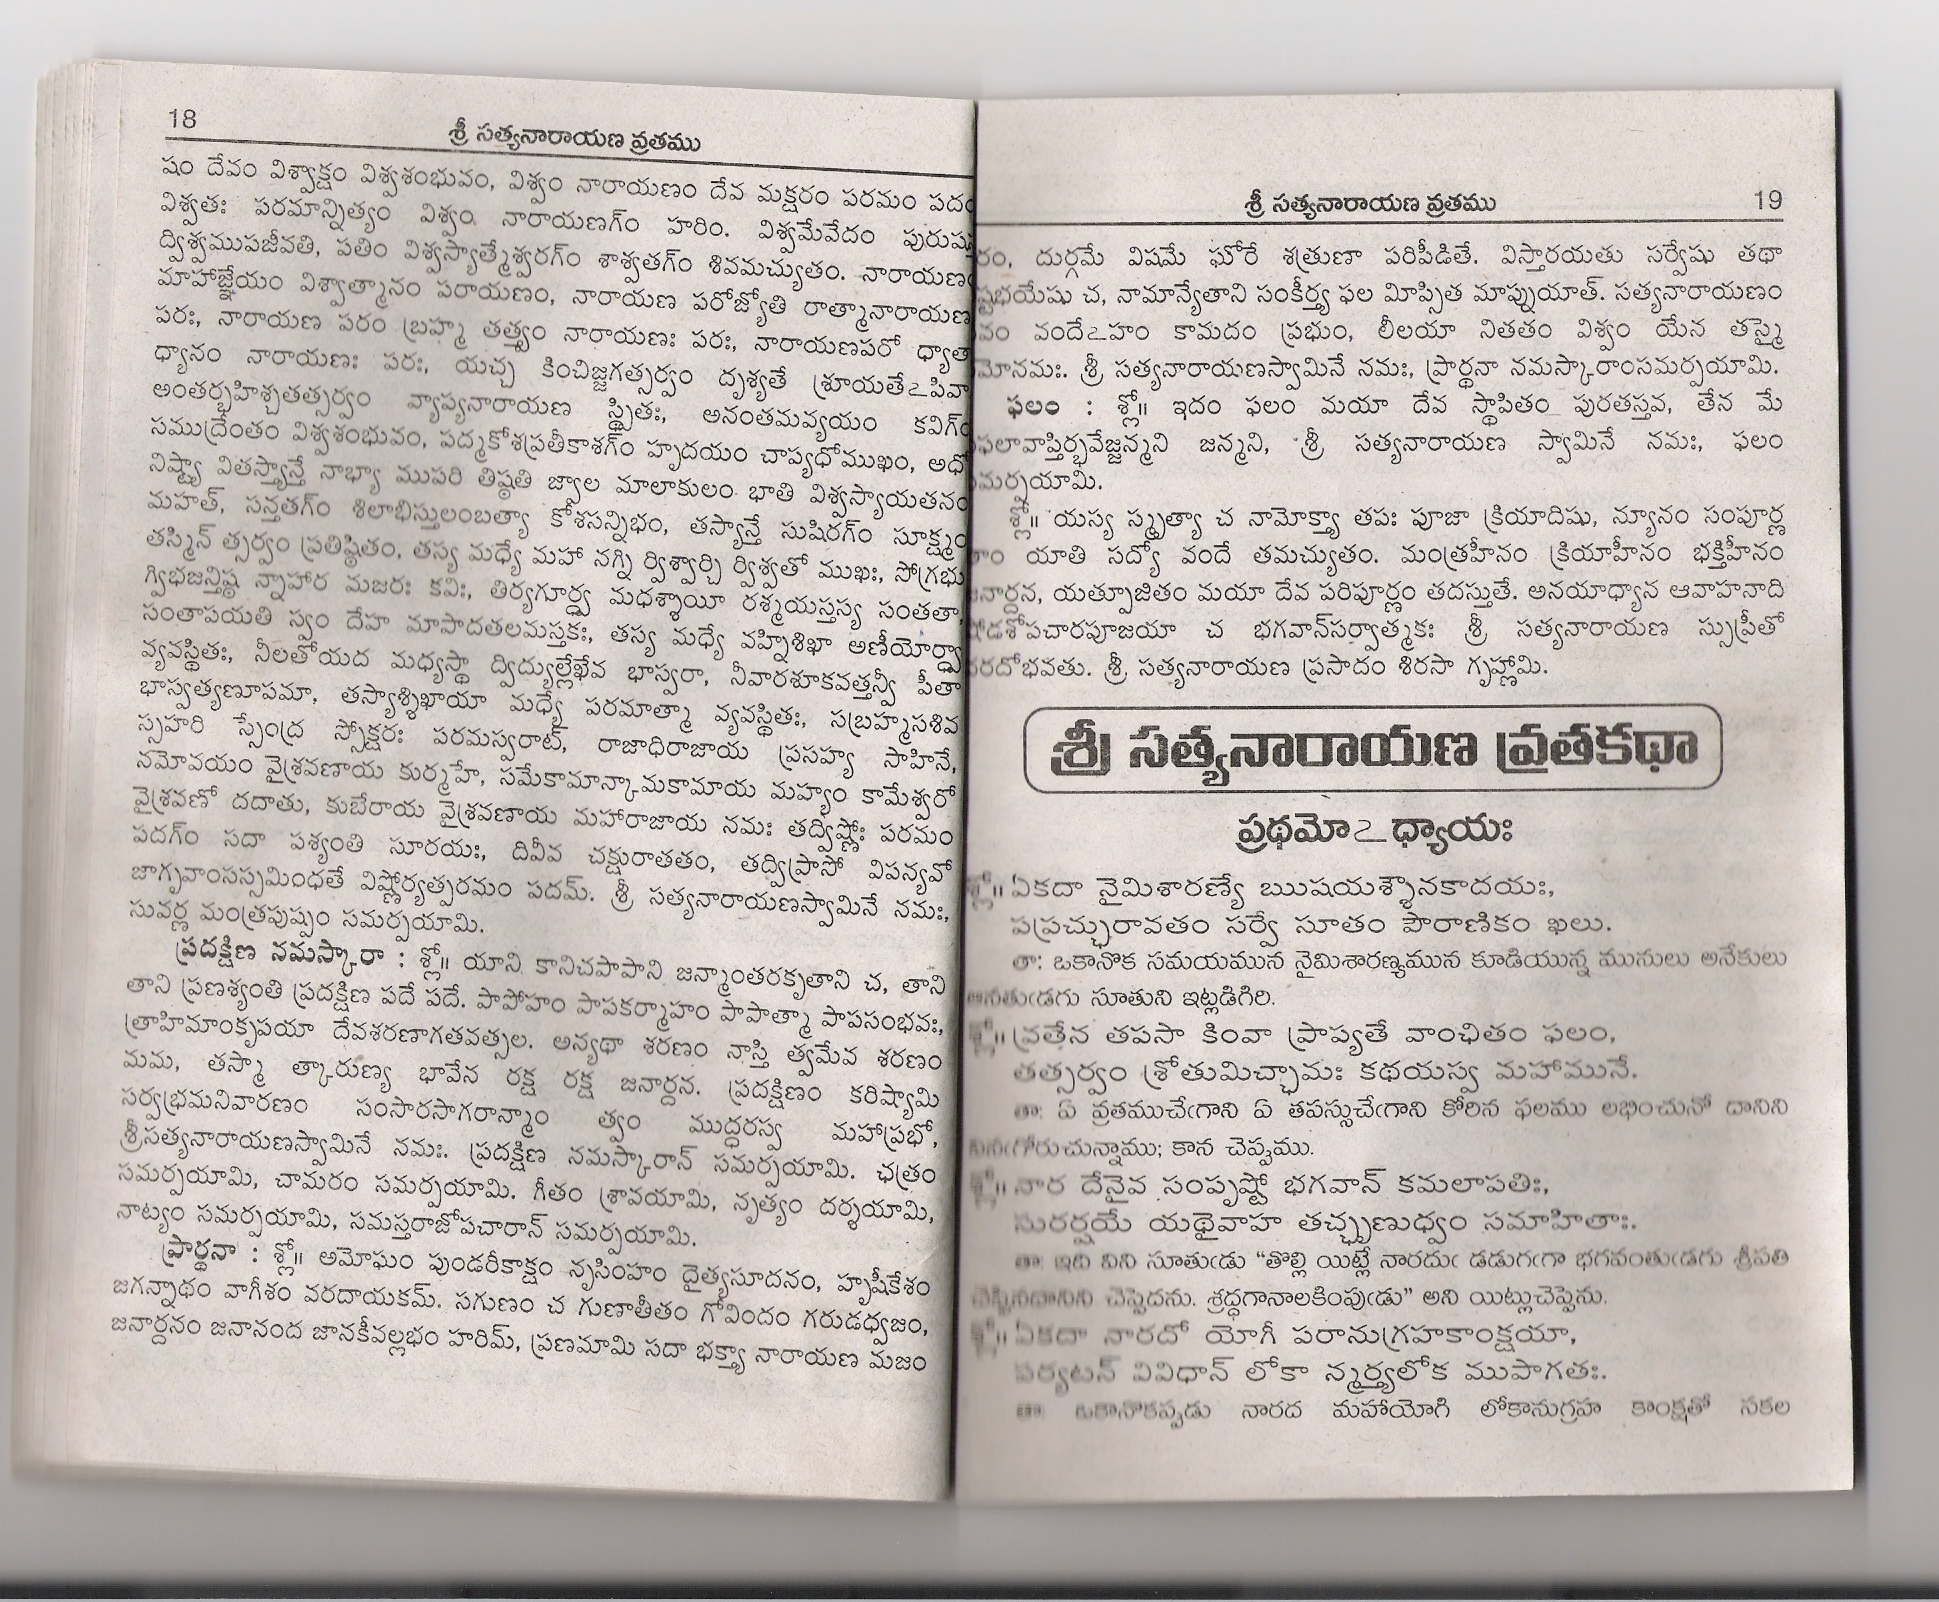 18
శ్రీ సత్యనారాయణ వ్రతము
షం దేవం విశ్వాక్షం విశ్వశంభువం, విశ్వం నారాయణం దేవ మక్షరం పరమం పదం
విశ్వతః పరమాన్నిత్యం విశ్వం నారాయణగ్‌ం హరిం. విశ్వమేవేదం పురుష
ద్విశ్వముపజీవతి, పతిం విశ్వస్యాత్మేశ్వరగ్‌ం శాశ్వతగ్‌ం శివమచ్యుతం. నారాయణం
మాహాజ్ఞేయం విశ్వాత్మానం పరాయణం, నారాయణ పరోజ్యోతి రాత్మానారాయణ
పరః, నారాయణ పరం బ్రహ్మ తత్త్వం నారాయణః పరః, నారాయణపరో ధ్యాతా
ధ్యానం నారాయణః పరః, యచ్చ కించిజ్జగత్సర్వం దృశ్యతే శ్రూయతేఽపివా
అంతర్బహిశ్చతత్సర్వం వ్యాప్యనారాయణ స్థ్సితః, అనంతమవ్యయం కవిగ్‌ం
సముద్రేంతం విశ్వశంభువం, పద్మకోశప్రతీకాశగ్‌ం హృదయం చాప్యధోముఖం, అధో
నిష్ట్యా వితస్త్యాన్తే నాభ్యా ముపరి తిష్ఠతి జ్వాల మాలాకులం భాతి విశ్వస్యాయతనం
మహత్, సన్తతగ్‌ం శిలాభిస్తులంబత్యా కోశసన్నిభం, తస్యాన్తే సుషిరగ్‌ం సూక్ష్మం
తస్మిన్ త్సర్వం ప్రతిష్ఠితం, తస్య మధ్యే మహా నగ్ని ర్విశ్వార్చి ర్విశ్వతో ముఖః, సోగ్రభు
గ్విభజన్తిష్ఠ న్నాహార మజరః కవిః, తిర్యగూర్ధ్వ మధశ్శాయీ రశ్మయస్తస్య సంతతా,
సంతాపయతి స్వం దేహ మాపాదతలమస్తకః, తస్య మధ్యే వహ్నిశిఖా అణీయోర్ధ్వా
వ్యవస్థితః, నీలతోయద మధ్యస్థా ద్విద్యుల్లేఖేవ భాస్వరా, నీవారశూకవత్తన్వీ పీతా
భాస్వత్యణూపమా, తస్యాశ్శిఖాయా మధ్యే పరమాత్మా వ్యవస్థితః, సబ్రహ్మసశివ
స్సహరి స్సేంద్ర స్సోక్షరః పరమస్వరాట్, రాజాధిరాజాయ ప్రసహ్య సాహినే,
నమోవయం వైశ్రవణాయ కుర్మహే, సమేకామాన్కామకామాయ మహ్యం కామేశ్వరో
వైశ్రవణో దదాతు, కుబేరాయ వైశ్రవణాయ మహారాజాయ నమః తద్విష్ణోః పరమం
పదగ్‌ం సదా పశ్యంతి సూరయః, దివీవ చక్షురాతతం, తద్విప్రాసో విపన్యవో
జాగృవాంసస్సమింధతే విష్ణోర్యత్పరమం పదమ్. శ్రీ సత్యనారాయణస్వామినే నమః,
సువర్ణ మంత్రపుష్పం సమర్పయామి.
ప్రదక్షిణ నమస్కారా : శ్లో॥ యాని కానిచపాపాని జన్మాంతరకృతాని చ, తాని
తాని ప్రణశ్యంతి ప్రదక్షిణ పదే పదే. పాపోహం పాపకర్మాహం పాపాత్మా పాపసంభవః,
త్రాహిమాంకృపయా దేవశరణాగతవత్సల. అన్యథా శరణం నాస్తి త్వమేవ శరణం
మమ, తస్మా త్కారుణ్య భావేన రక్ష రక్ష జనార్దన. ప్రదక్షిణం కరిష్యామి
సర్వభ్రమనివారణం సంసారసాగరాన్మాం త్వం ముద్ధరస్వ మహాప్రభో,
శ్రీసత్యనారాయణస్వామినే నమః. ప్రదక్షిణ నమస్కారాన్ సమర్పయామి. ఛత్రం
సమర్పయామి, చామరం సమర్పయామి. గీతం శ్రావయామి, నృత్యం దర్శయామి,
నాట్యం సమర్పయామి, సమస్తరాజోపచారాన్ సమర్పయామి.
ప్రార్థనా : శ్లో॥ అమోఘం పుండరీకాక్షం నృసింహం దైత్యసూదనం, హృషీకేశం
జగన్నాథం వాగీశం వరదాయకమ్. సగుణం చ గుణాతీతం గోవిందం గరుడధ్వజం,
జనార్దనం జనానంద జానకీవల్లభం హరిమ్, ప్రణమామి సదా భక్త్యా నారాయణ మజం
శ్రీ సత్యనారాయణ వ్రతము
19
రం, దుర్గమే విషమే ఘోరే శత్రుణా పరిపీడితే. విస్తారయతు సర్వేషు తథా
ష్టభయేషు చ, నామాన్యేతాని సంకీర్త్య ఫల మీప్సిత మాప్నుయాత్. సత్యనారాయణం
వం వందేఽహం కామదం ప్రభుం, లీలయా నితతం విశ్వం యేన తస్మై
మోనమః. శ్రీ సత్యనారాయణస్వామినే నమః, ప్రార్థనా నమస్కారాంసమర్పయామి.
ఫలం : శ్లో॥ ఇదం ఫలం మయా దేవ స్థాపితం పురతస్తవ, తేన మే
ఫలావాప్తిర్భవేజ్జన్మని జన్మని, శ్రీ సత్యనారాయణ స్వామినే నమః, ఫలం
మర్పయామి.
శ్లో॥ యస్య స్మృత్యా చ నామోక్త్యా తపః పూజా క్రియాదిషు, న్యూనం సంపూర్ణ
తాం యాతి సద్యో వందే తమచ్యుతం. మంత్రహీనం క్రియాహీనం భక్తిహీనం
నార్దన, యత్పూజితం మయా దేవ పరిపూర్ణం తదస్తుతే. అనయాధ్యాన ఆవాహనాది
షోడశోపచారపూజయా చ భగవాన్‌సర్వాత్మకః శ్రీ సత్యనారాయణ స్సుప్రీతో
వరదోభవతు. శ్రీ సత్యనారాయణ ప్రసాదం శిరసా గృహ్ణామి.
శ్రీ సత్యనారాయణ వ్రతకథా
ప్రథమోఽ ధ్యాయః
శ్లో॥ ఏకదా నైమిశారణ్యే ఋషయశ్శౌనకాదయః,
పప్రచ్ఛురావతం సర్వే సూతం పౌరాణికం ఖలు.
తా: ఒకానొక సమయమున నైమిశారణ్యమున కూడియున్న మునులు అనేకులు
సూతుని ఇట్లడిగిరి.
శ్లో॥ వ్రతేన తపసా కింవా ప్రాప్యతే వాంఛితం ఫలం,
తత్సర్వం శ్రోతుమిచ్ఛామః కథయస్వ మహామునే.
తా: ఏ వ్రతముచేఁగాని ఏ తపస్సుచేఁగాని కోరిన ఫలము లభించునో దానిని
వినఁగోరుచున్నాము; కాన చెప్పము.
శ్లో॥ నార దేనైవ సంపృష్టో భగవాన్ కమలాపతిః,
సురర్షయే యథైవాహ తచ్ఛృణుధ్వం సమాహితాః.
తా: ఇది విని సూతుఁడు “తొల్లి యిట్లే నారదుఁ డడుగఁగా భగవంతుఁడగు శ్రీపతి
చెప్పినదానిని చెప్పెదను. శ్రద్ధగానాలకింపుఁడు” అని యిట్లుచెప్పెను.
శ్లో॥ ఏకదా నారదో యోగీ పరానుగ్రహకాంక్షయా,
పర్యటన్ వివిధాన్ లోకా న్మర్త్యలోక ముపాగతః.
తా: ఒకానొకప్పడు నారద మహాయోగి లోకానుగ్రహ కాంక్షతో సకల